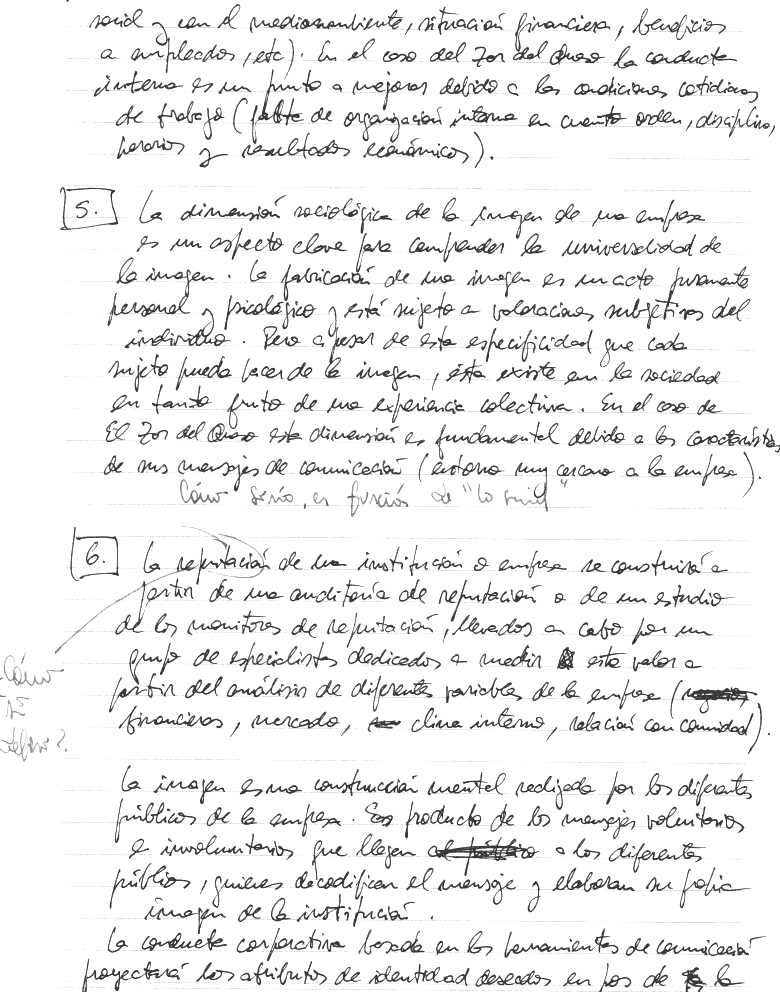 social y con el medioambiente, situación financiera, beneficios
a empleados, etc). En el caso del Zar del Queso la conducta
interna es un punto a mejorar debido a las condiciones cotidianas
de trabajo (falta de organización interna en cuanto orden, disciplina,
horarios y resultados económicos).
5. La dimensión sociológica de la imagen de una empresa
es un aspecto clave para comprender la universalidad de
la imagen. La fabricación de una imagen es un acto puramente
personal y psicológico y está sujeto a valoraciones subjetivas del
individuo. Pero a pesar de esta especificidad que cada
sujeto pueda hacer de la imagen, ésta existe en la sociedad
en tanto fruto de una experiencia colectiva. En el caso de
El Zar del Queso esta dimensión es fundamental debido a las características
de sus mensajes de comunicación (entorno muy cercano a la empresa).
Cómo sería, es función de "lo
6. La reputación de una institución o empresa se construirá a
partir de una auditoría de reputación o de un estudio
de los monitores de reputación, llevados a cabo por un
grupo de especialistas dedicados a medir este valor a
partir del análisis de diferentes variables de la empresa (
financieras, mercado, clima interno, relación con comunidad).
Cómo
se
define?
La imagen es una construcción mental realizada por los diferentes
públicos de la empresa. Es producto de los mensajes voluntarios
e involuntarios que llegan a los diferentes
públicos, quienes decodifican el mensaje y elaboran su propia
imagen de la institución.
La conducta corporativa basada en las herramientas de comunicación
proyectará los atributos de identidad deseados en pos de la